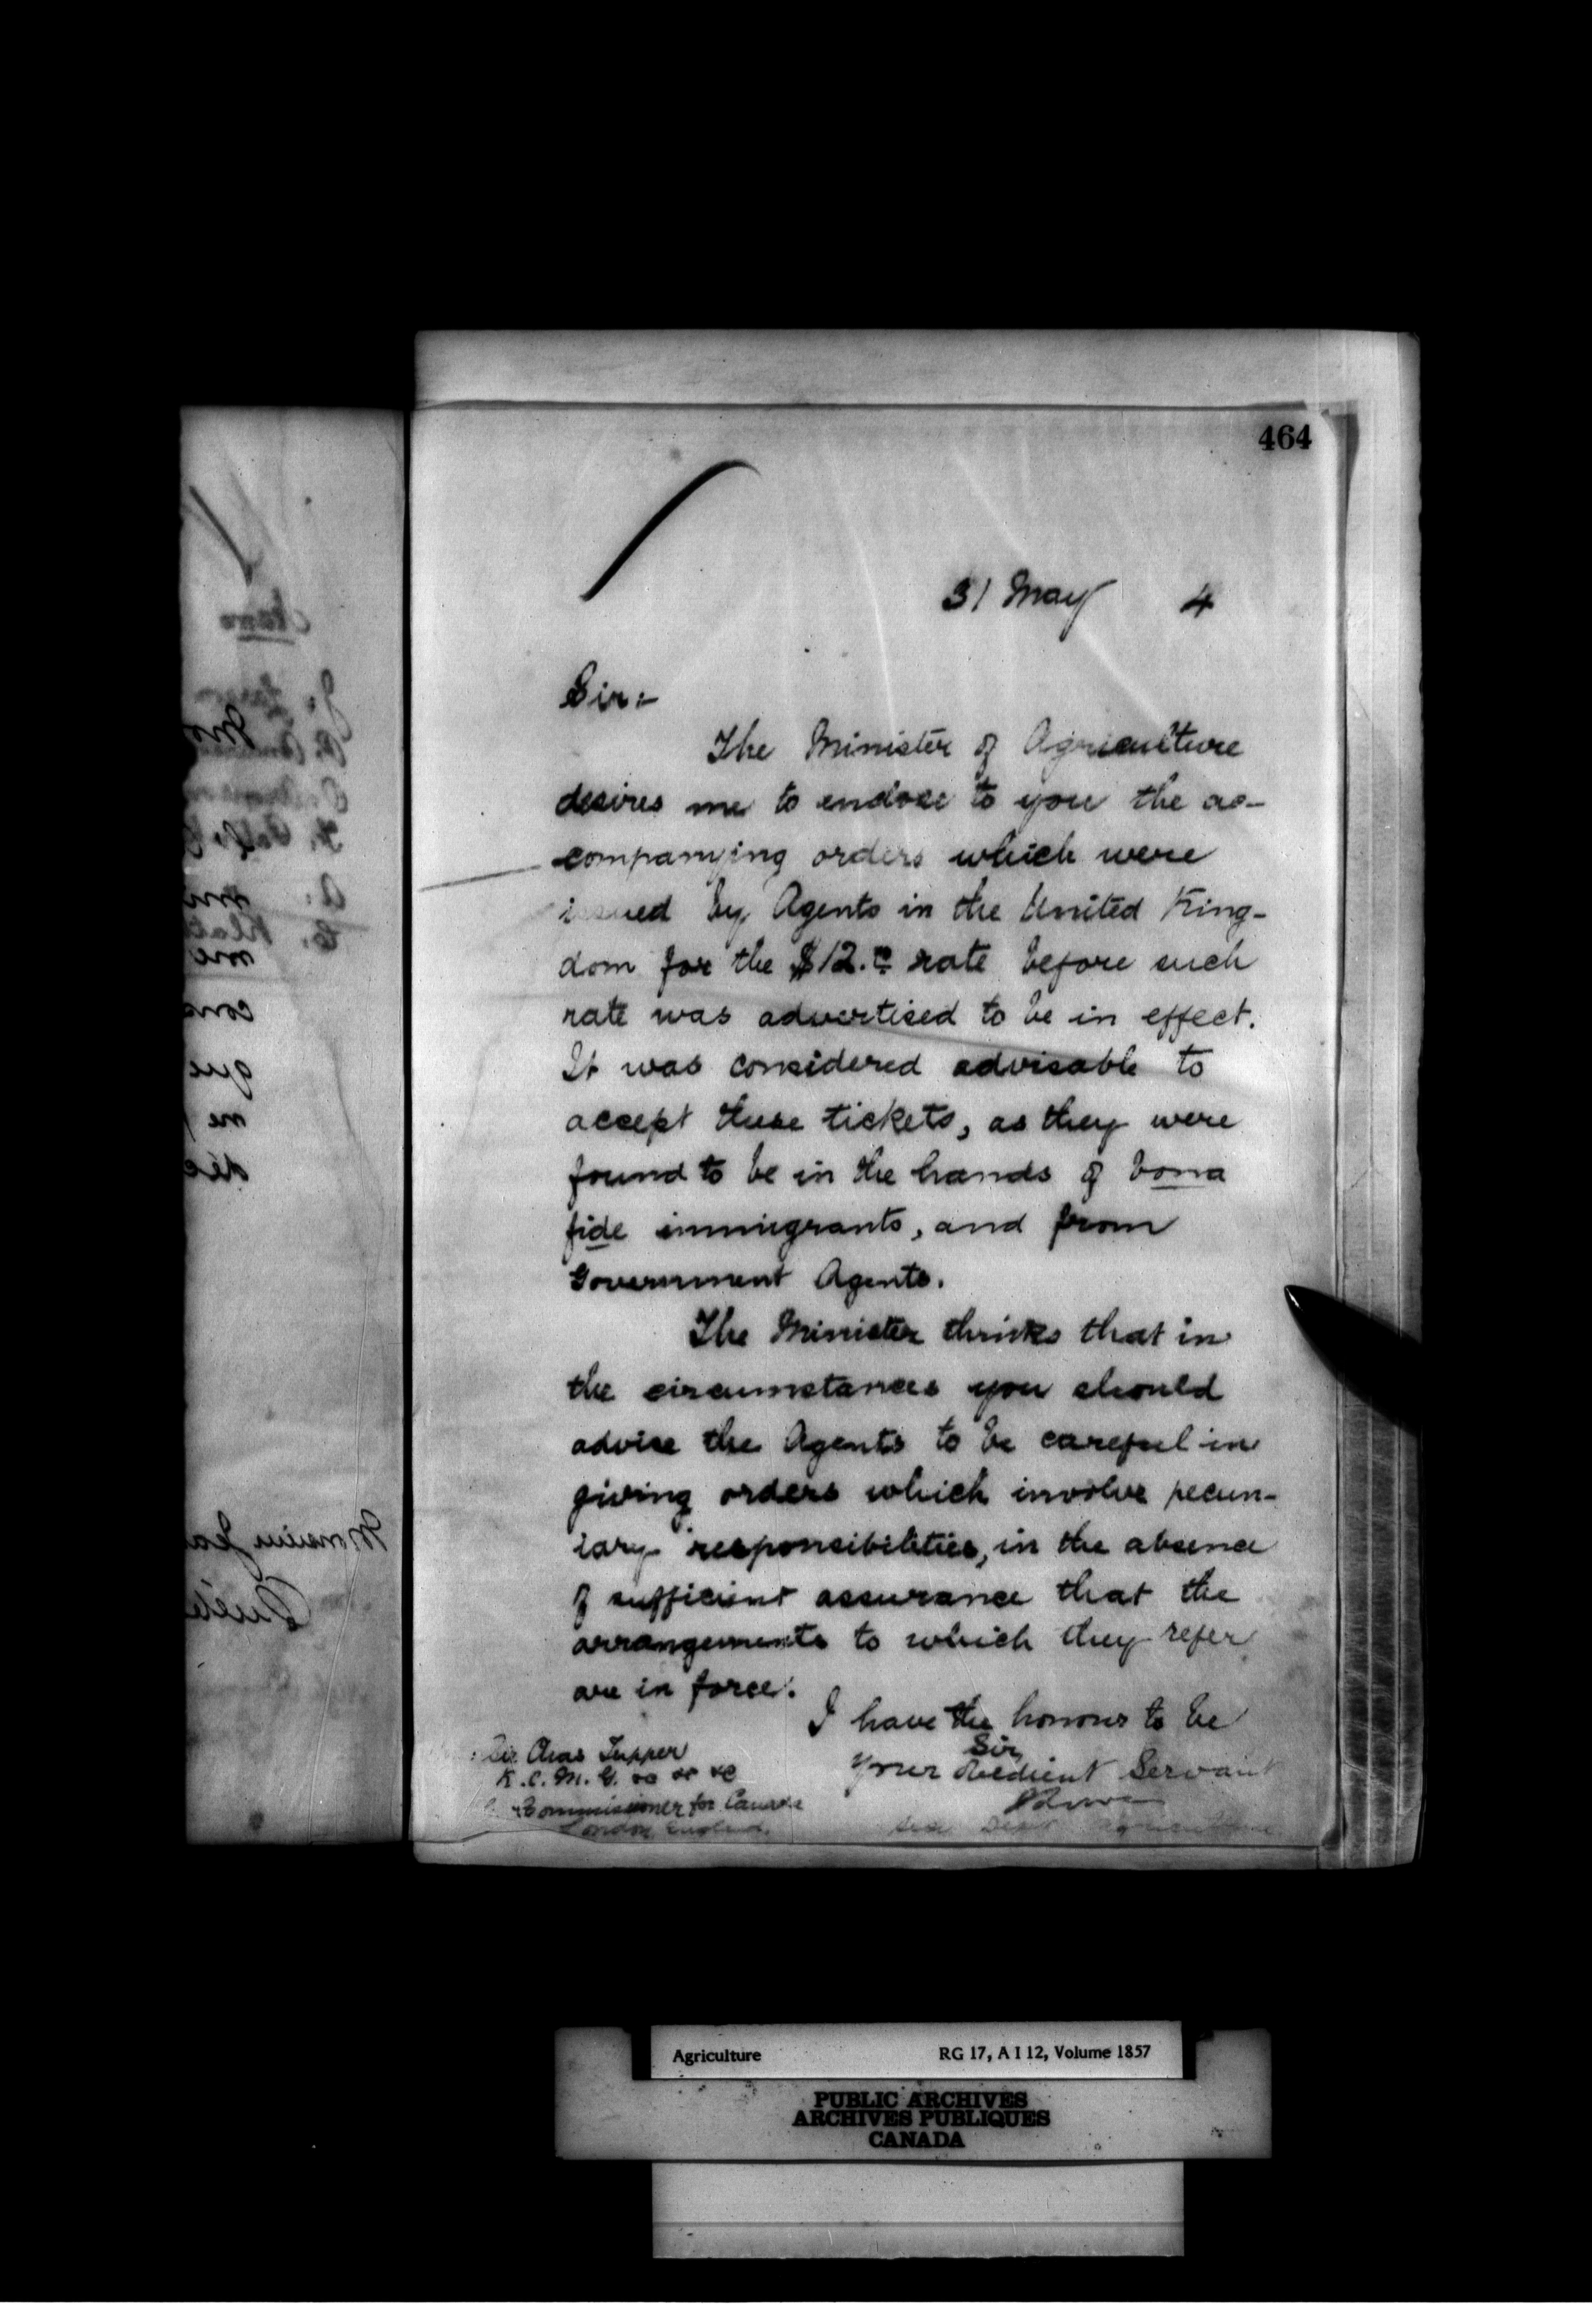 464
31 May 4
Sir:-
The Minister of Agriculture
desires me to enclose to you the ac-
companying orders which were
issued by Agents in the United King-
dom for the $12.00 rate before such
rate was advertised to be in effect.
It was considered advisable to
accept these tickets, as they were
found to be in the hands of bona
fide immigrants, and from
Government Agents.
The Minister thinks that in
the circumstances you should
advise the Agents to be careful in
giving orders which involve pecun-
iary responsibilities, in the absence
of sufficient assurance that the
arrangements to which they refer
are in force.
I have the honour to be
Sir,
Your Obedient Servant
Sec Dept Agriculture
Sir Chas Tupper
K.C.M.G. &c &c &c
Commissioner for Canada
London England.
Agriculture RG 17, A I 12, Volume 1857
PUBLIC ARCHIVES
ARCHIVES PUBLIQUES
CANADA